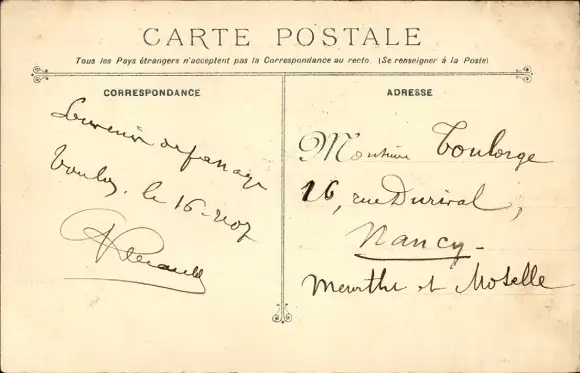 CARTE POSTALE
Tous les Pays étrangers n'acceptent pas la Correspondance au recto. (Se renseigner à la Poste)
CORRESPONDANCE
Souvenir de passage
le 16-2-07
ADRESSE
Monsieur Toulorge
16, rue Durival,
Nancy-
Meurthe et Moselle